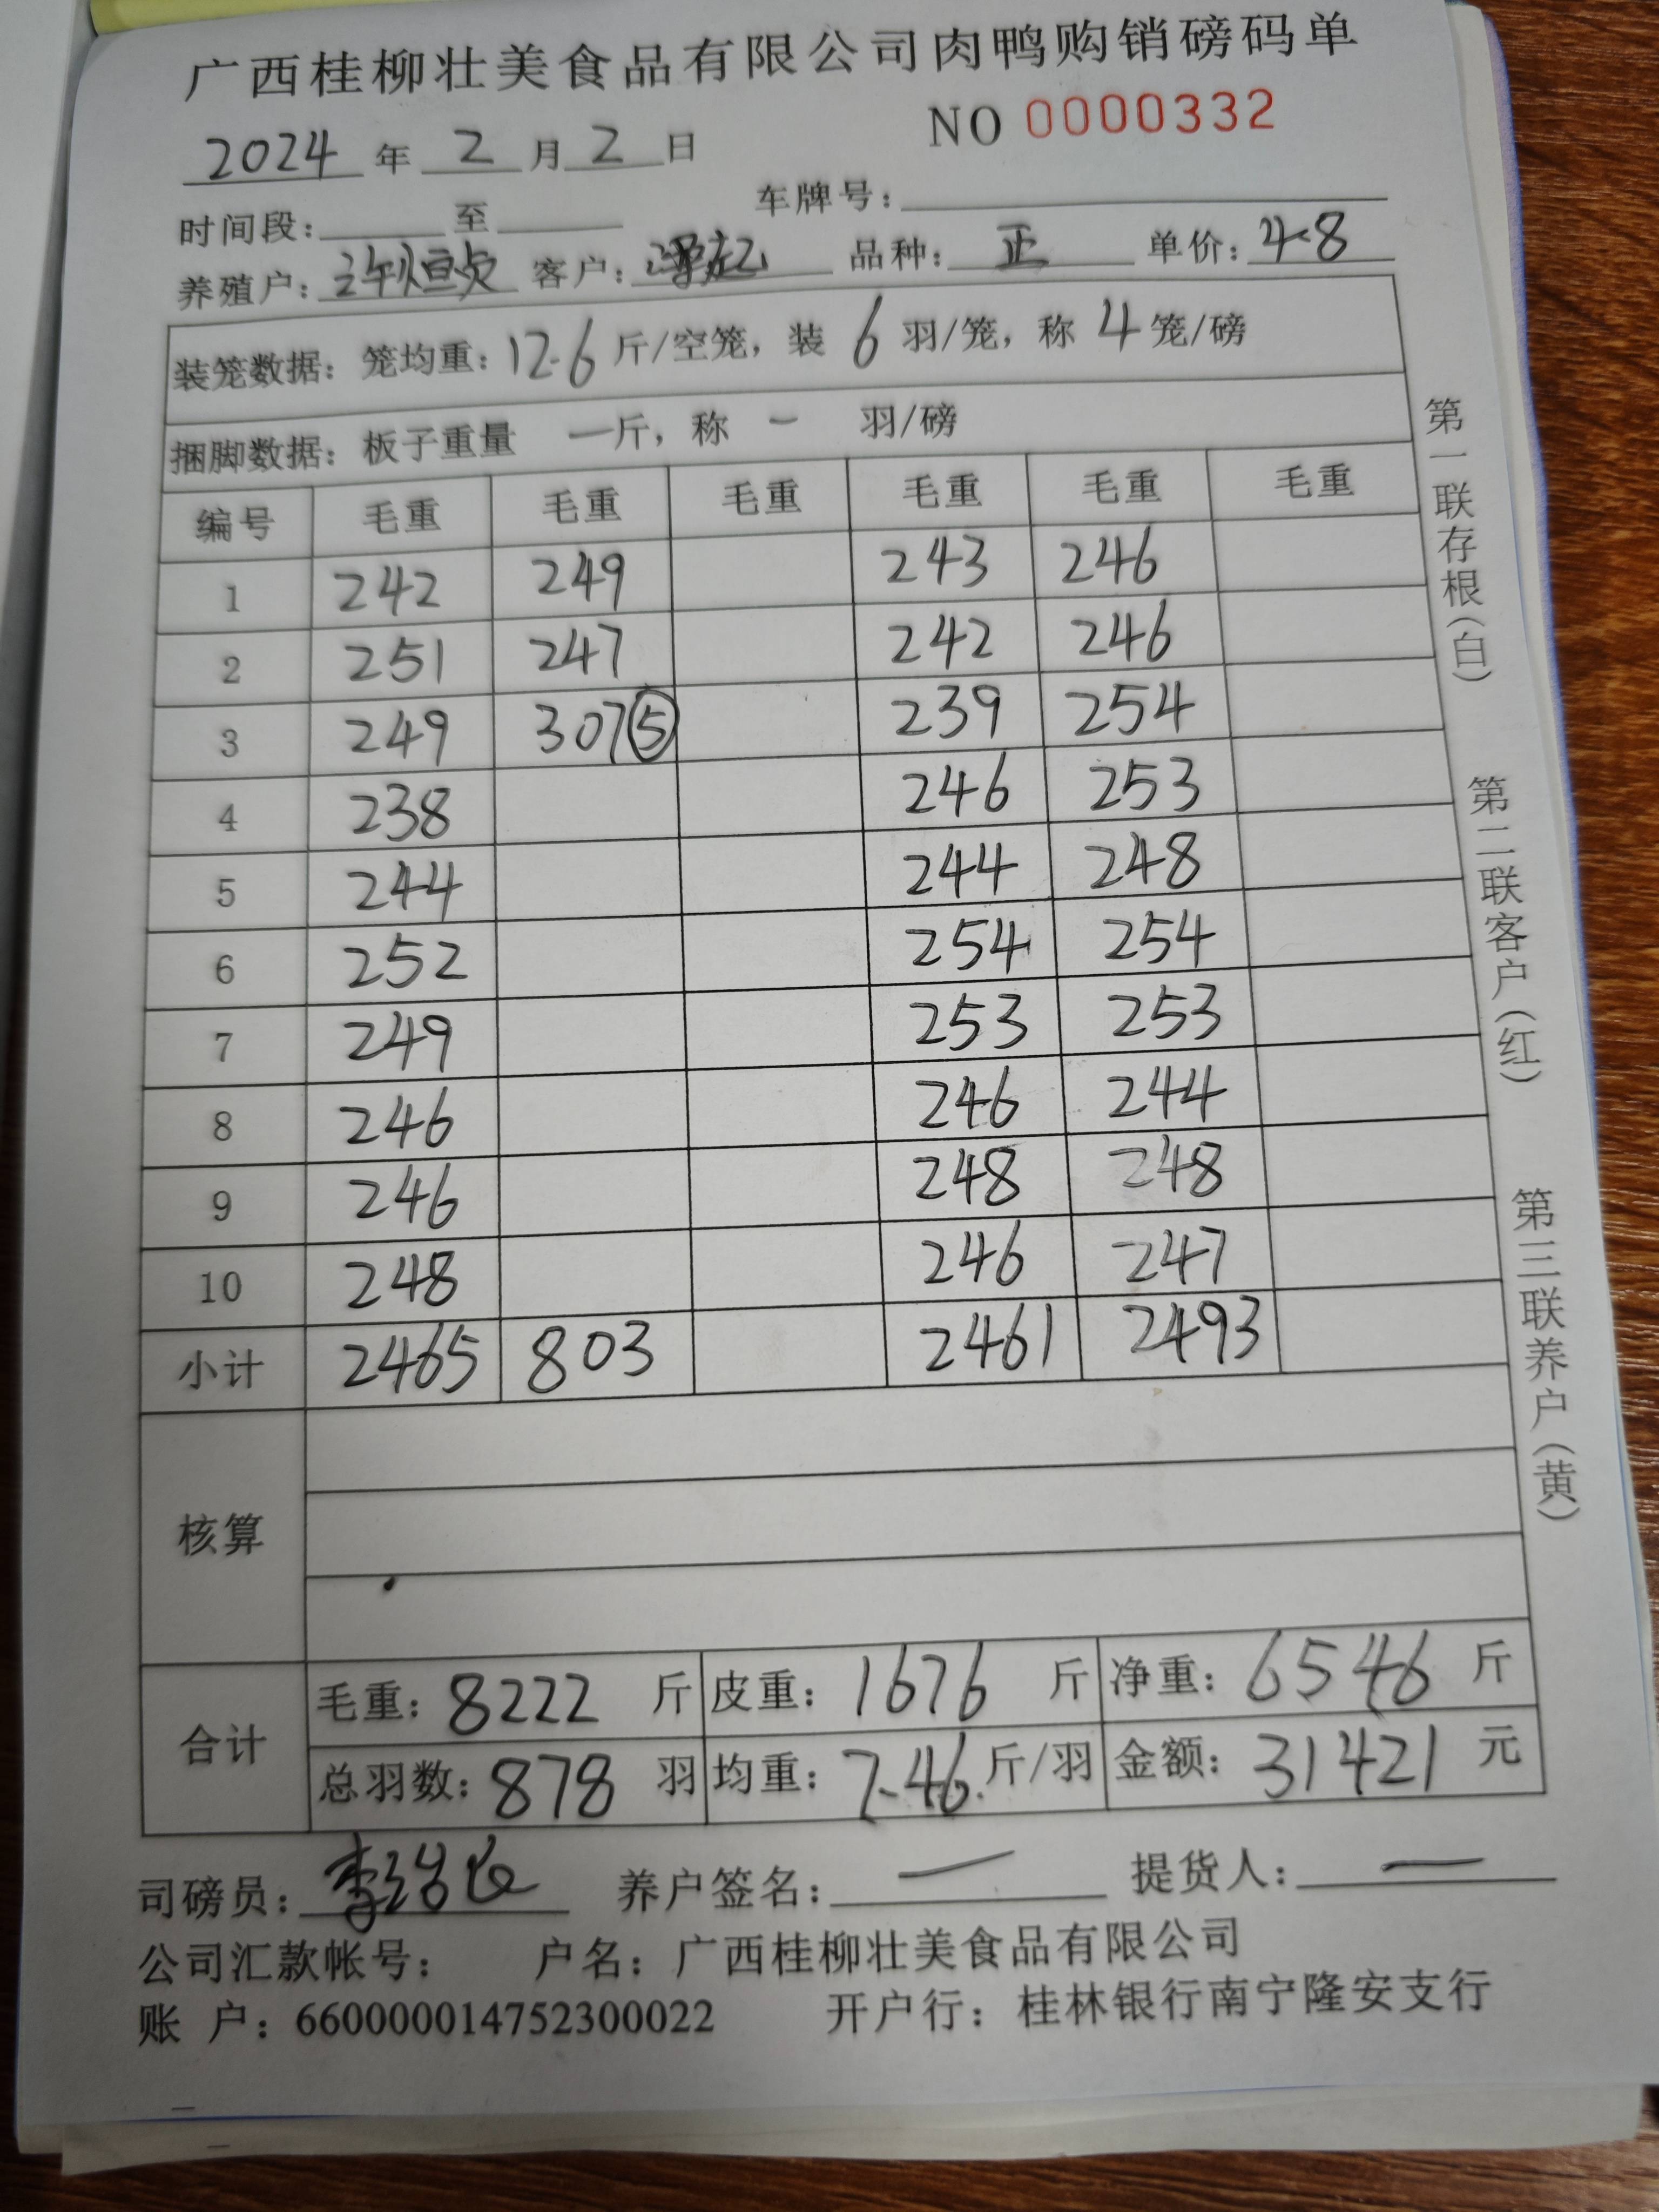 广西桂柳壮美食品有限公司肉鸭购销磅码单
NO 0000332
2024 年 2 月 2 日
时间段： 至 车牌号：
养殖户：许恒贞 客户： 品种：正 单价：4.8
装笼数据：笼均重：12.6 斤/空笼，装 6 羽/笼，称 4 笼/磅
捆脚数据：板子重量 一斤，称 一 羽/磅
编号 毛重 毛重 毛重 毛重 毛重 毛重
1 242 249 243 246
2 251 247 242 246
3 249 307⑤ 239 254
4 238 246 253
5 244 244 248
6 252 254 254
7 249 253 253
8 246 246 244
9 246 248 248
10 248 246 247
小计 2465 803 2461 2493
核算
合计 毛重：8222 斤 皮重：1676 斤 净重：6546 斤
总羽数：878 羽 均重：7.46 斤/羽 金额：31421 元
司磅员： 养户签名：— 提货人：—
公司汇款帐号： 户名：广西桂柳壮美食品有限公司
账 户：660000014752300022 开户行：桂林银行南宁隆安支行
第一联存根（白） 第二联客户（红） 第三联养户（黄）